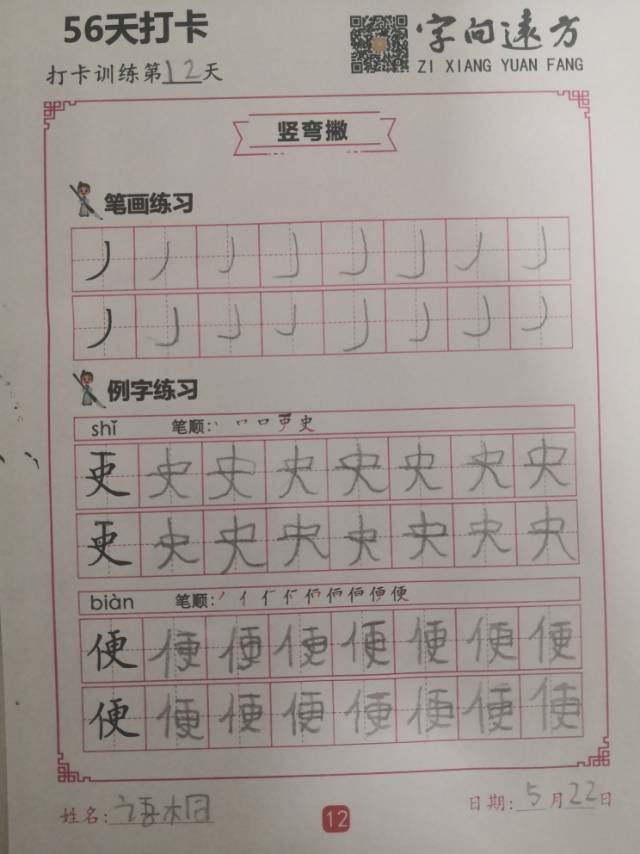 56天打卡
打卡训练第12天
字向远方
ZI XIANG YUAN FANG
竖弯撇
笔画练习
丿 丿 丿 丿 丿 丿 丿 丿
丿 丿 丿 丿 丿 丿 丿 丿
例字练习
shǐ 笔顺: 史
史 史 史 史 史 史 史 史
史 史 史 史 史 史 史 史
biàn 笔顺: 便
便 便 便 便 便 便 便 便
便 便 便 便 便 便 便 便
姓名: 语桐
12
日期: 5月22日